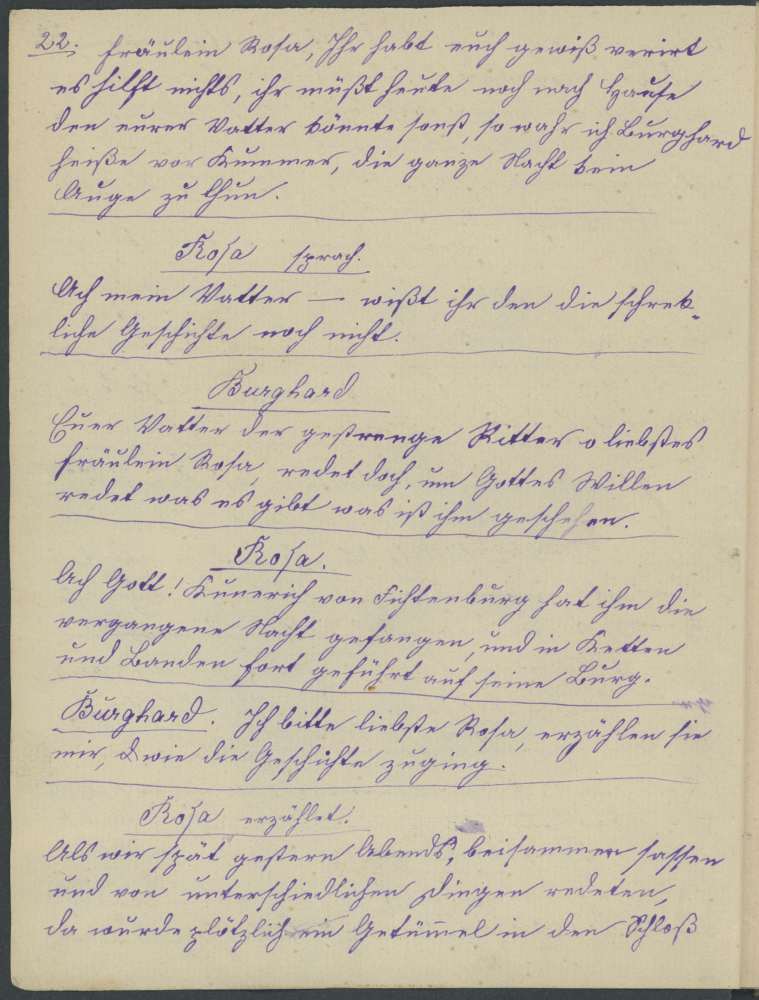 22. Fräulein Rosa, Ihr habt euch gewiß verirt
es hilft nichts, ihr müßt heute noch nach Hause
den eurer Vatter könnte sonst, so wahr ich Burghard
heiße vor Kummer, die ganze Nacht kein
Auge zu thun.
Rosa sprach.
Ach mein Vatter — wißt ihr den die schrek-
liche Geschichte noch nicht.
Burghard
Euer Vatter der gestrenge Ritter o liebstes
Fräulein Rosa, redet doch, um Gottes Willen
redet was es gibt was ist ihm geschehen.
Rosa.
Ach Gott! Kunerich von Fichtenburg hat ihm die
vergangene Nacht gefangen, und in Ketten
und Banden fort geführt auf seine Burg.
Burghard. Ich bitte liebste Rosa, erzählen sie
mir, wie die Geschichte zuging.
Rosa erzählet.
Als wir spät gestern Abends, beisammen sassen
und von unterschiedlichen Dingen redeten,
da wurde plötzlich ein Getümmel in den Schloß